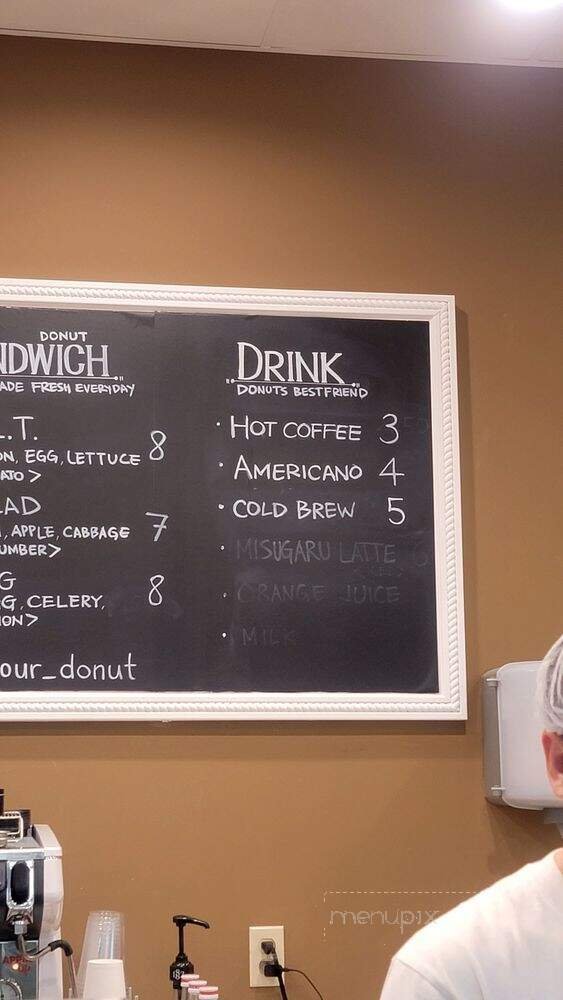 DONUT
NDWICH
ADE FRESH EVERYDAY
L.T. 8
ON, EGG, LETTUCE
ATO >
LAD 7
, APPLE, CABBAGE
UMBER>
G 8
G, CELERY,
ION>
our_donut
DRINK
DONUTS BESTFRIEND
· HOT COFFEE 3
· AMERICANO 4
· COLD BREW 5
· MISUGARU LATTE
· ORANGE JUICE
· MILK
menupix